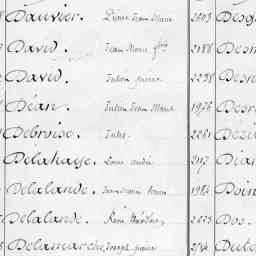 Dauvier. Pierre Jean Marie 2603 Desg
David. Jean Marie 2188 Desm
David. Julien 2238 Desn
Déan. Julien Jean Marie 1926 Desr
Debroise. Jules 2261 Dézi
Delahaye. Louis André 2117 Dia
Delalande. 1984 Doin
Delalande. René 2623 Dos
Delamarche, Joseph Dub